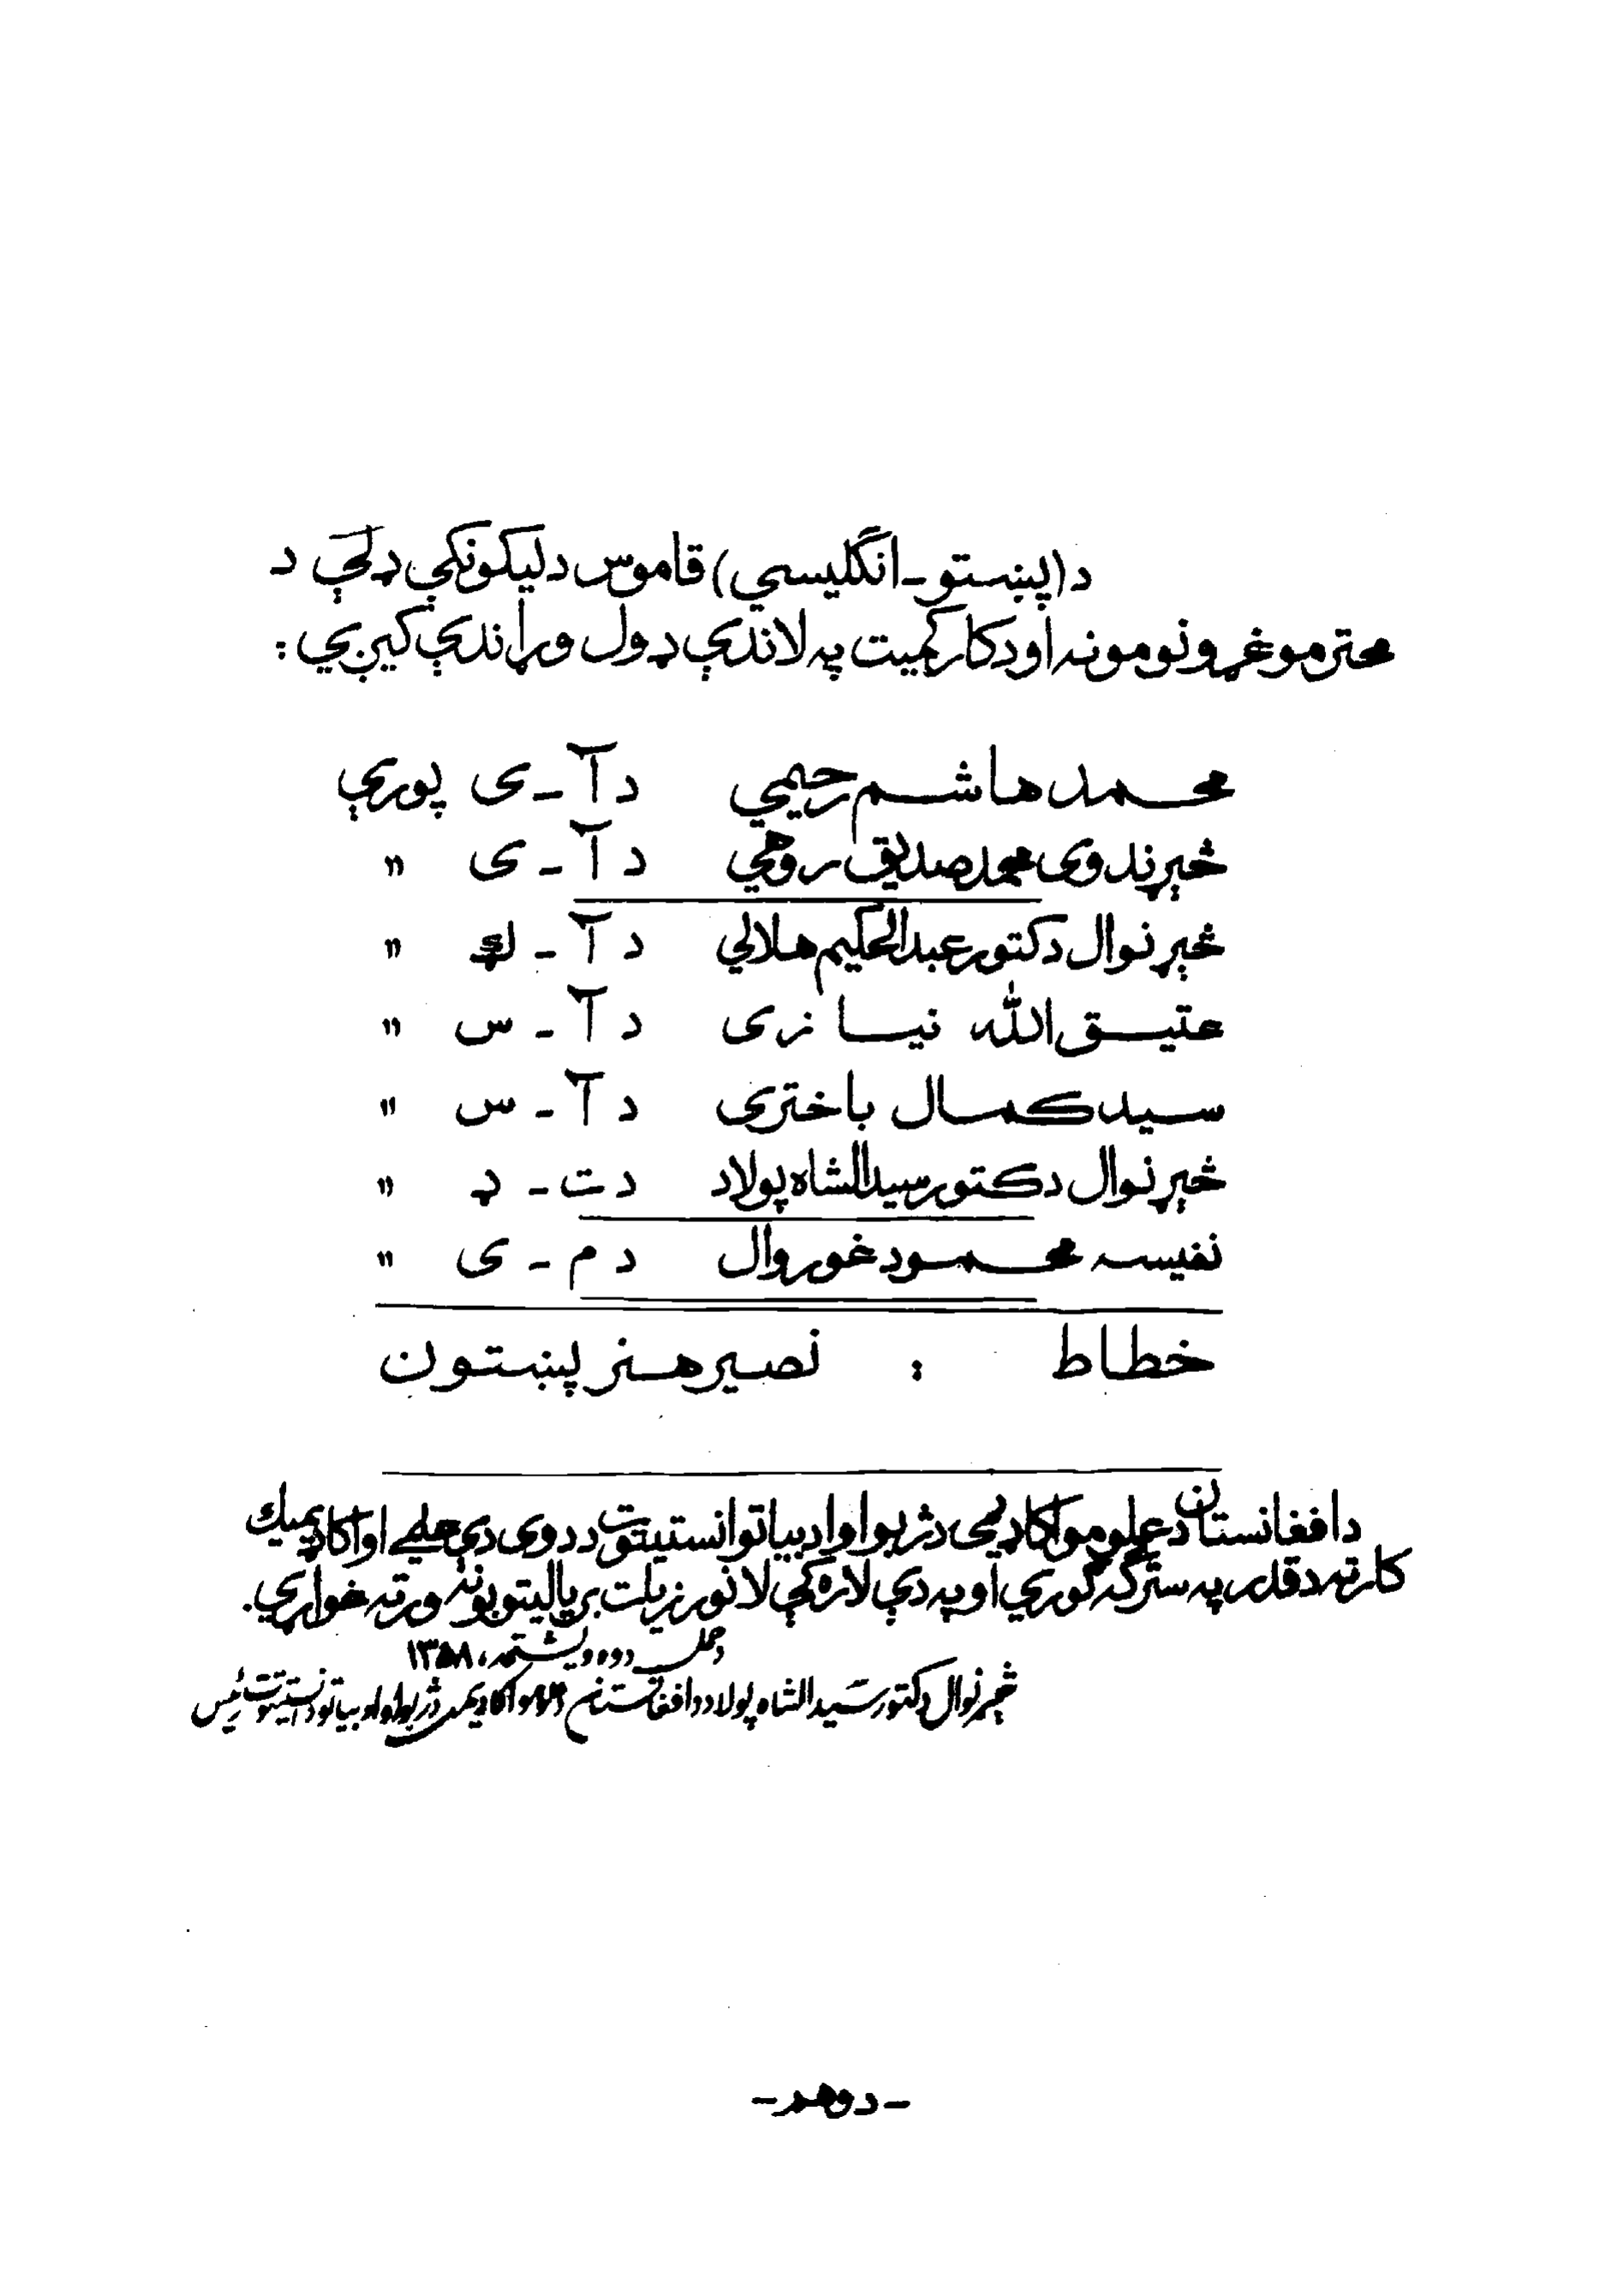 د (پښتو - انګلیسي) قاموس د لیکونکې ډلې د
محترمو غړو نومونه او د کار کمیت په لاندې ډول وړاندې کیږي :
محمد هاشم رحیمي د آ - ی پورې
څېړندوی محمد صدیق روهي د آ - ی "
څېړنوال دکتور عبدالحکیم هلالي د آ - "
عتیق الله نیازی د آ - س "
سید کمال باختری د آ - س "
څېړنوال دکتور سیدالشاه پولاد د ت - ډ "
نفیسه محمود غوروال د م - ی "
خطاط : نصیر هنر پښتون
د افغانستان د علومو اکاډیمي د ژبو او ادبیاتو انستیتوت د دوی دې علمي او اکاډیمیک
کار ته د قدر په سترګه ګوري او په دې لاره کې لا نور زیات بریالیتوبونه ورته غواړي.
د حمل دوه ویشتمه، ۱۳۵۸
څېړنوال دکتور سیدالشاه پولاد د افغانستان د علومو اکاډیمي د ژبو او ادبیاتو د انستیتوت رئیس
- دوهم -